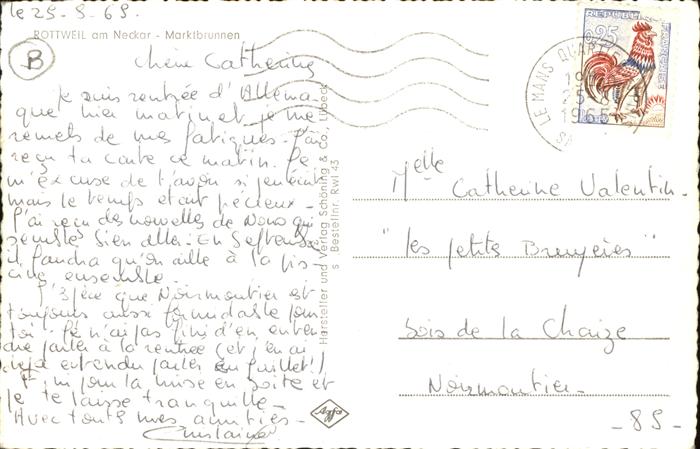 le 25-8-65.
ROTTWEIL am Neckar - Marktbrunnen
B
Chère Catherine
Je suis rentrée d'Allema-
gne hier matin et je me
remets de mes fatigues. J'ai
reçu ta carte ce matin. Je
m'excuse de t'avoir si
mais le temps était précieux -
J'ai reçu des nouvelles de qui
semble bien aller. En Septembre
il faudra qu'on aille à la pis-
cine ensemble.
J'espère que Noirmoutier est
toujours aussi formidable pour
toi. Je n'ai pas fini d'en enten-
dre parler à la rentrée (et j'en ai
déjà entendu parler en juillet!)
la mise en boîte et
je te laisse tranquille -
Avec toutes mes amitiés -
Ghislaine
Hersteller und Verlag Schöning & Co., Lübeck
s Bestellnr. Rwl 43
Agfa
REPUBLIQUE FRANÇAISE
0,25
LE MANS QUARTIER
25 - 8
1965
Melle Catherine Valentin -
"les petites Bruyères"
bois de la Chaize
Noirmoutier -
- 85 -